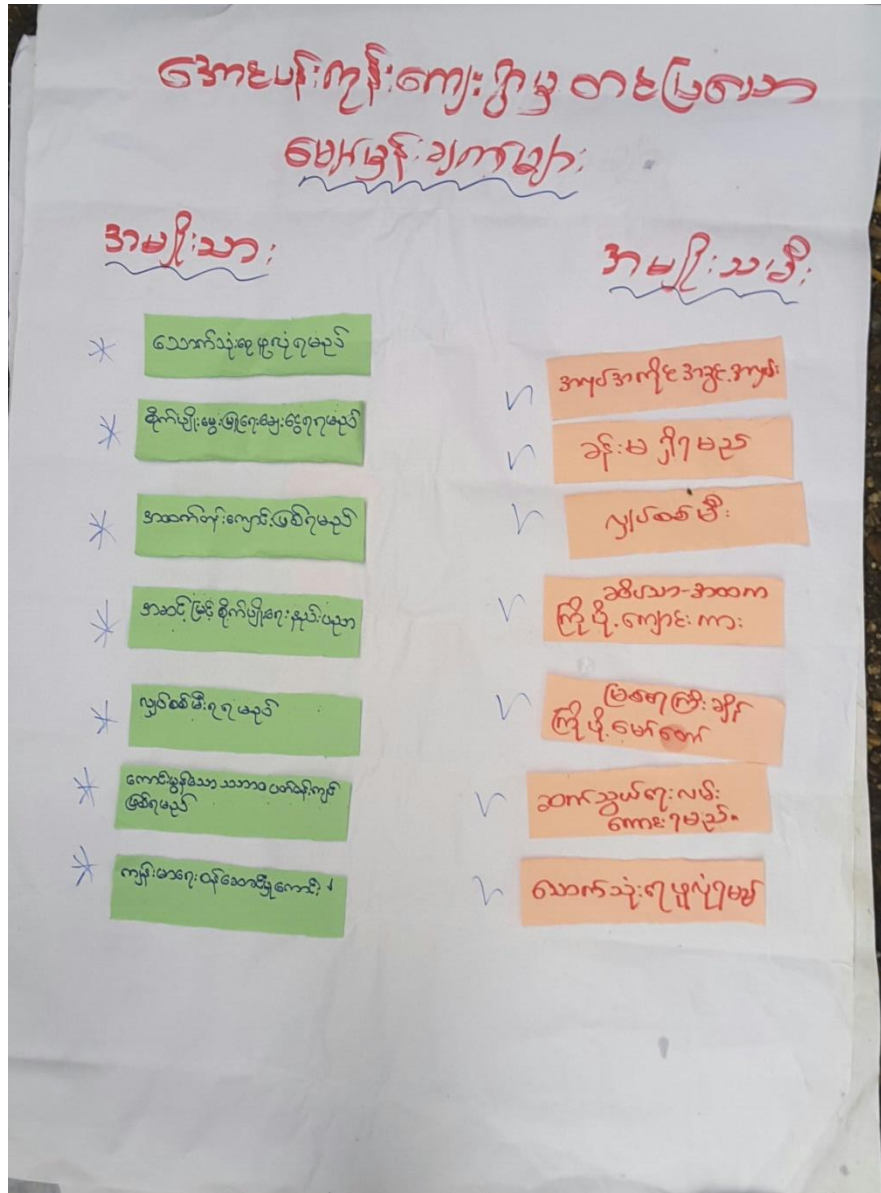 အောင်ပန်းကုန်းကျေးရွာမှ တင်ပြသော
မျှော်မှန်းချက်များ
အမျိုးသား
သောက်သုံးရေ ဖူလုံရမည်
စိုက်ပျိုးမွေးမြူရေးချေးငွေရရမည်
အထက်တန်းကျောင်းဖြစ်ရမည်
အဆင့်မြင့်စိုက်ပျိုးရေးနည်းပညာ
လျှပ်စစ်မီးရရမည်
ကောင်းမွန်သော သဘာဝပတ်ဝန်းကျင်
ဖြစ်ရမည်
ကျန်းမာရေးဝန်ဆောင်မှုကောင်း
အမျိုးသမီး
အလုပ်အကိုင်အခွင့်အလမ်း
ခန်းမ ရှိရမည်
လျှပ်စစ်မီး
အထက
ကြိုပို့ကျောင်းကား
မြစ်ရေကြီးချိန်
ကြိုပို့မော်တော်
ဆက်သွယ်ရေးလမ်း
ကောင်းရမည်။
သောက်သုံးရေဖူလုံရမည်